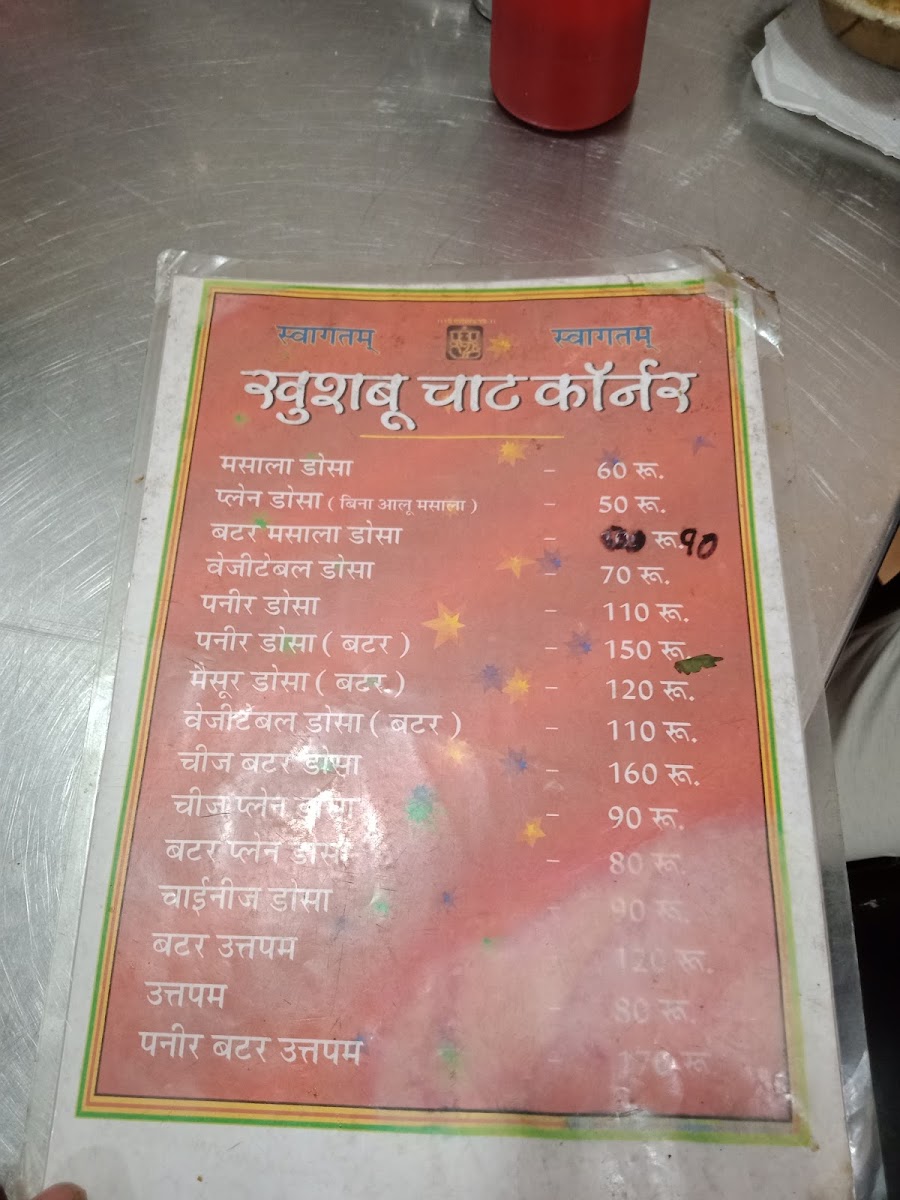 स्वागतम् स्वागतम्
खुशबू चाट कॉर्नर
मसाला डोसा - 60 रू.
प्लेन डोसा ( बिना आलू मसाला ) - 50 रू.
बटर मसाला डोसा - रू. 90
वेजीटेबल डोसा - 70 रू.
पनीर डोसा - 110 रू.
पनीर डोसा ( बटर ) - 150 रू.
मैसूर डोसा ( बटर ) - 120 रू.
वेजीटेबल डोसा ( बटर ) - 110 रू.
चीज बटर डोसा - 160 रू.
चीज प्लेन डोसा - 90 रू.
बटर प्लेन डोसा - 80 रू.
चाईनीज डोसा - 90 रू.
बटर उत्तपम - 120 रू.
उत्तपम - 80 रू.
पनीर बटर उत्तपम - 170 रू